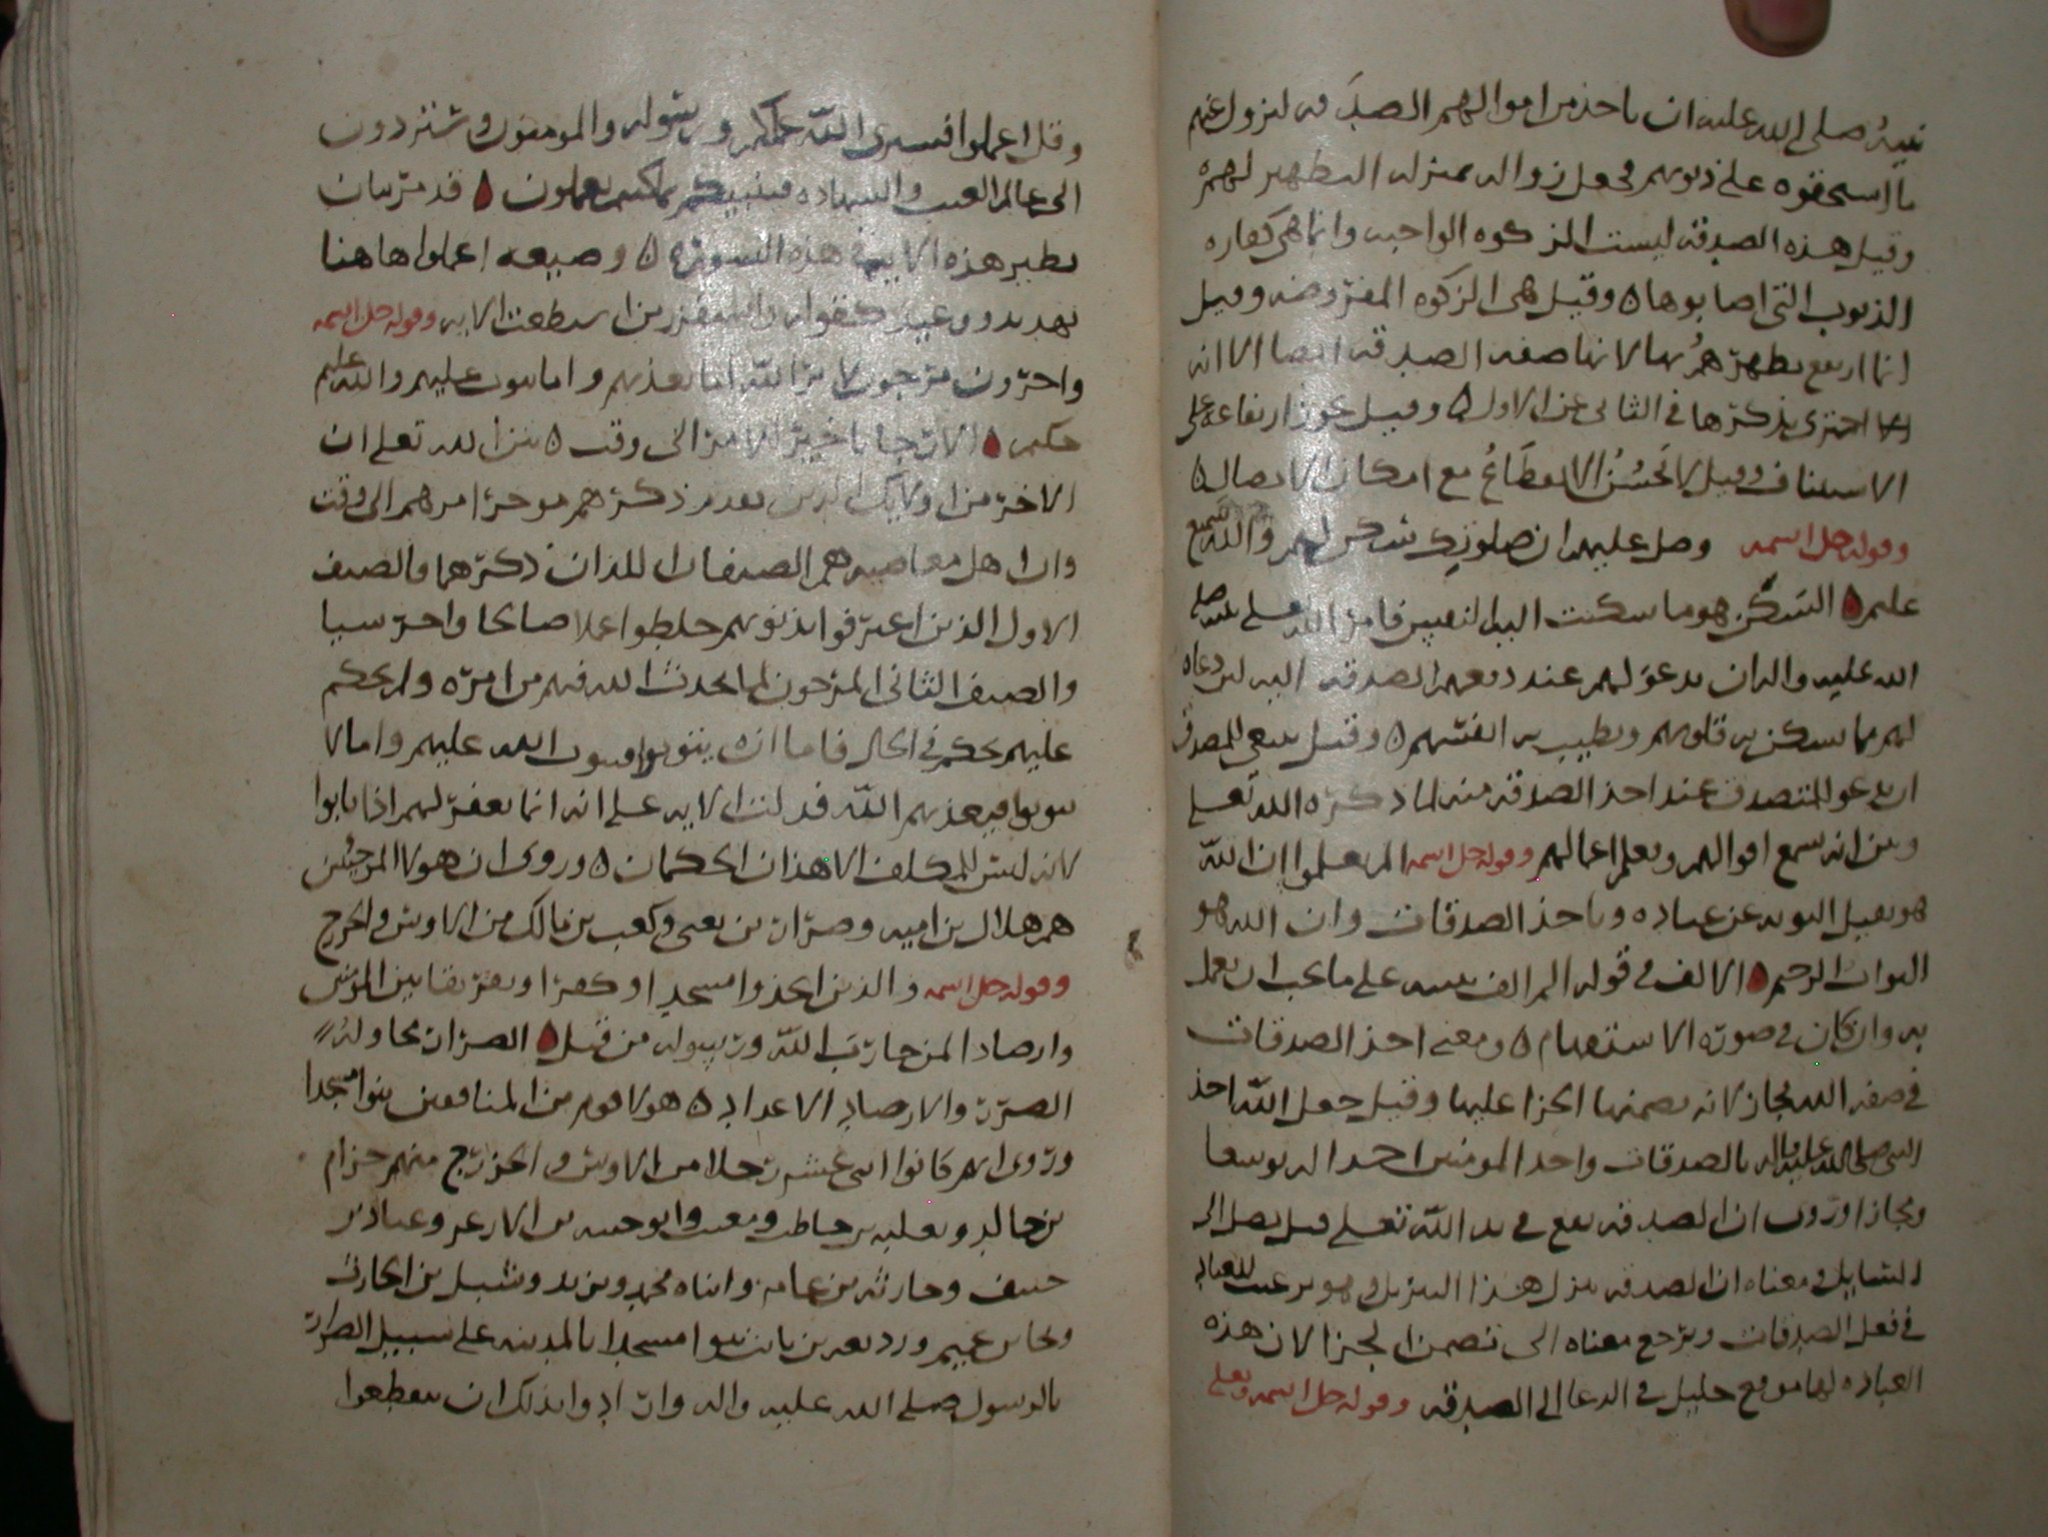 نبيه صلى الله عليه ان ياخذ من اموالهم الصدقه ليزول عنهم
ما استحقوه على ذنوبهم فجعل زواله بمنزله التطهير لهم ه
وقيل هذه الصدقة ليست الزكوه الواجبه وانما هي كفاره
الذنوب التى اصابوها ه وقيل هى الزكوه المفروضه وقيل
انما ارتفع تطهرهم بها لانها صفه الصدقه ايضا الا انه
اجتزى بذكرها في الثانى عن الاول ه وقيل يجوز ارتفاعه على
الاستيناف وقيل لا يحسُنُ الانقطاعُ مع امكان الاتصال ه
وقوله جل اسمه وصل عليهم ان صلوتك سكن لهم والله سميع
عليم ه السَكَن هو ما سكنت اليه النفس فامر الله صلى
الله عليه واله ان يدعو لهم عند دفعهم الصدقه اليه لان دعاه
لهم مما تسكن به قلوبهم وتطيب به انفسهم ه وقيل ينبغى للمصدق
ان يدعو للمتصدق عند اخذ الصدقه منه لما ذكره الله تعلى
وبين انه يسمع اقوالهم ويعلم اعمالهم وقوله جل اسمه الم يعلموا ان الله
هو يقبل التوبه عن عباده وياخذ الصدقات وان الله هو
التواب الرحيم ه الالف في قوله الم الف تنبيه على ما يجب ان يعمل
به وان كان في صوره الاستفهام ه ومعنى اخذ الصدقات
في صفه الله مجاز لانه تضمنها الجزا عليها وقيل جعل الله اخذ
النبى صلى الله عليه واله بالصدقات واخذ المومنين اخذا له توسعا
ومجازا وروى ان الصدقه تقع في يد الله تعلى قبل يصل الى
السايل ومعناه ان الصدقه تنزل هذا التنزيل وهو ترغيب للعباد
في فعل الصدقات ويرجع معناه الى تضمن الجزا لان هذه
العباده لها موقع جليل في الدعا الى الصدقه وقوله جل اسمه وتعلى
وقل اعملوا فسيرى الله عملكم ورسوله والمومنون وستردون
الى عالم الغيب والشهاده فينبيكم بما كنتم تعملون ه قد مر بيان
نظير هذه الايه في هذه السوره ه وصيغه اعملوا هاهنا
تهديد ووعيد كقوله واستفزز من استطعت الايه وقوله جل اسمه
واخرون مرجون لامر الله اما يعذبهم واما يتوب عليهم والله عليم
حكيم ه الارجا تاخير الامر الى وقت ه بين الله تعلى ان
الاخر من اوليك الذين تقدم ذكرهم موخر امرهم الى وقت
وان اهل معاصيه هم الصنفان اللذان ذكرهما والصنف
الاول الذين اعترفوا بذنوبهم خلطوا عملا صالحا واخر سيا
والصنف الثانى المرجون لما يحدث الله فيهم من امره ولم يحكم
عليهم بحكم في الحال فاما ان يتوبوا فيتوب الله عليهم واما لا
يتوبوا فيعذبهم الله فدلت الايه على انه انما يغفر لهم اذا تابوا
لانه ليس للمكلف الا هذان الحكمان ه وروى ان هولا المرجين
هم هلال بن اميه و بن وكعب بن مالك من الاوس والخزرج
وقوله جل اسمه والذين اتخذوا مسجد او كفرا وتفريقا بين المومنين
وارصادا لمن حارب الله ورسوله من قبل ه الضرار محاوله
الضرر والارصاد الاعداد ه هولا قوم من المنافقين بنوا مسجدا
وروى انهم كانوا اثنى عشر رجلا من الاوس والخزرج منهم خزام
بن خالد وثعلبه بن حاطب ومعتب وابو حبيبه بن الازعر وعباد بن
حنيف وحارثه بن عامر وابناه مجمع وزيد ونبتل بن الحارث
وبحاد بن ووديعه بن ثابت بنوا مسجدا بالمدينه على سبيل الضرار
بالرسول صلى الله عليه واله وارادوا بذلك ان يقطعوا